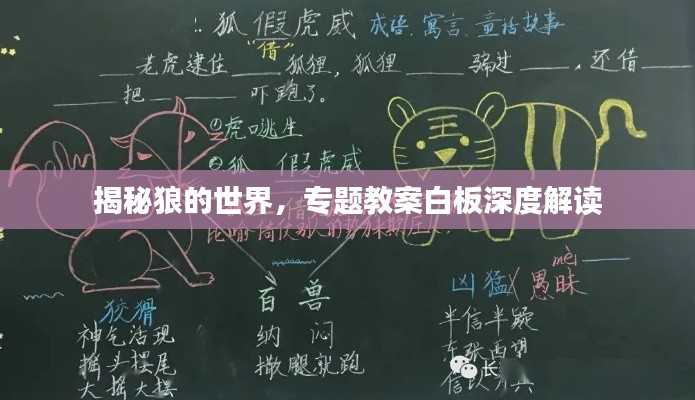 狐假虎威 成语、寓言、童话故事
“借”
___老虎逮住___狐狸，狐狸___骗过___，还借___
___把___吓跑了。
①虎口逃生
②狐假虎威
王
揭秘狼的世界，专题教案白板深度解读
mèi
狡猾 百兽 凶猛 愚昧
神气活现 纳闷 半信半疑
摇头摆尾 撒腿就跑 东张西望
大摇大摆 信以为真
长